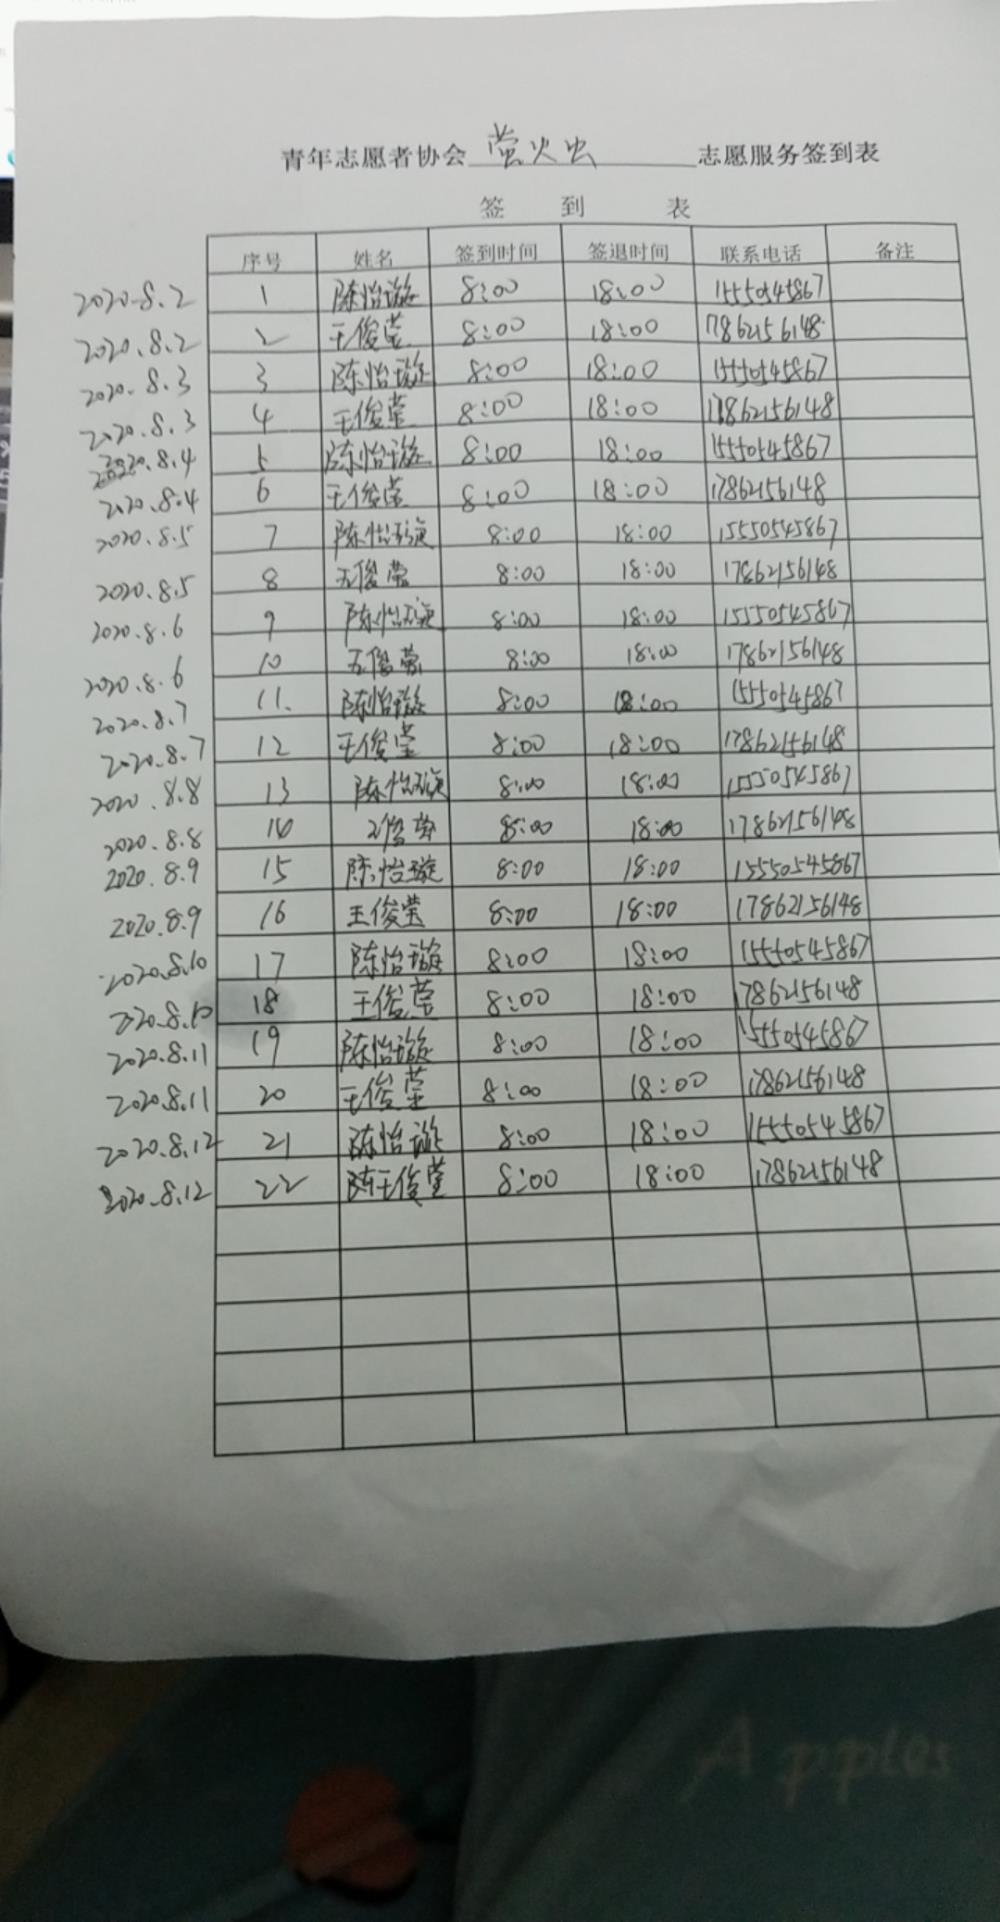 青年志愿者协会 萤火虫 志愿服务签到表
签 到 表
序号 姓名 签到时间 签退时间 联系电话 备注
2020.8.2 1 陈怡璇 8:00 18:00 15550545867
2020.8.2 2 王俊莹 8:00 18:00 17862156148
2020.8.3 3 陈怡璇 8:00 18:00 15550545867
2020.8.3 4 王俊莹 8:00 18:00 17862156148
2020.8.4 5 陈怡璇 8:00 18:00 15550545867
2020.8.4 6 王俊莹 8:00 18:00 17862156148
2020.8.5 7 陈怡璇 8:00 18:00 15550545867
2020.8.5 8 王俊莹 8:00 18:00 17862156148
2020.8.6 9 陈怡璇 8:00 18:00 15550545867
2020.8.6 10 王俊莹 8:00 18:00 17862156148
2020.8.7 11. 陈怡璇 8:00 18:00 15550545867
2020.8.7 12 王俊莹 8:00 18:00 17862156148
2020.8.8 13 陈怡璇 8:00 18:00 15550545867
2020.8.8 14 王俊莹 8:00 18:00 17862156148
2020.8.9 15 陈怡璇 8:00 18:00 15550545867
2020.8.9 16 王俊莹 8:00 18:00 17862156148
2020.8.10 17 陈怡璇 8:00 18:00 15550545867
2020.8.10 18 王俊莹 8:00 18:00 17862156148
2020.8.11 19 陈怡璇 8:00 18:00 15550545867
2020.8.11 20 王俊莹 8:00 18:00 17862156148
2020.8.12 21 陈怡璇 8:00 18:00 15550545867
2020.8.12 22 陈王俊莹 8:00 18:00 17862156148
Apples